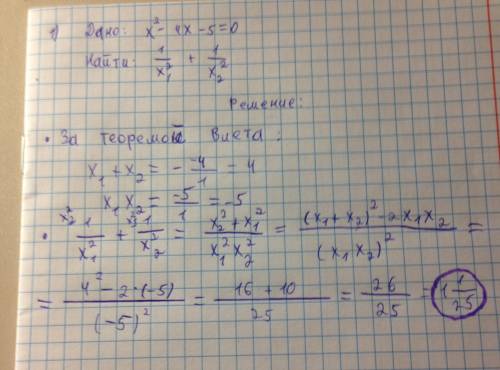 1) Дано: x² - 4x - 5 = 0
Найти: 1/x₁² + 1/x₂²
Решение:
• За теоремой Виета:
x₁ + x₂ = - -4/1 = 4
x₁x₂ = -5/1 = -5
• x₂² 1/x₁² + x₁² 1/x₂² = (x₂² + x₁²)/(x₁² x₂²) = ((x₁ + x₂)² - 2x₁x₂)/(x₁x₂)² =
= (4² - 2·(-5))/(-5)² = (16 + 10)/25 = 26/25 = 1 1/25